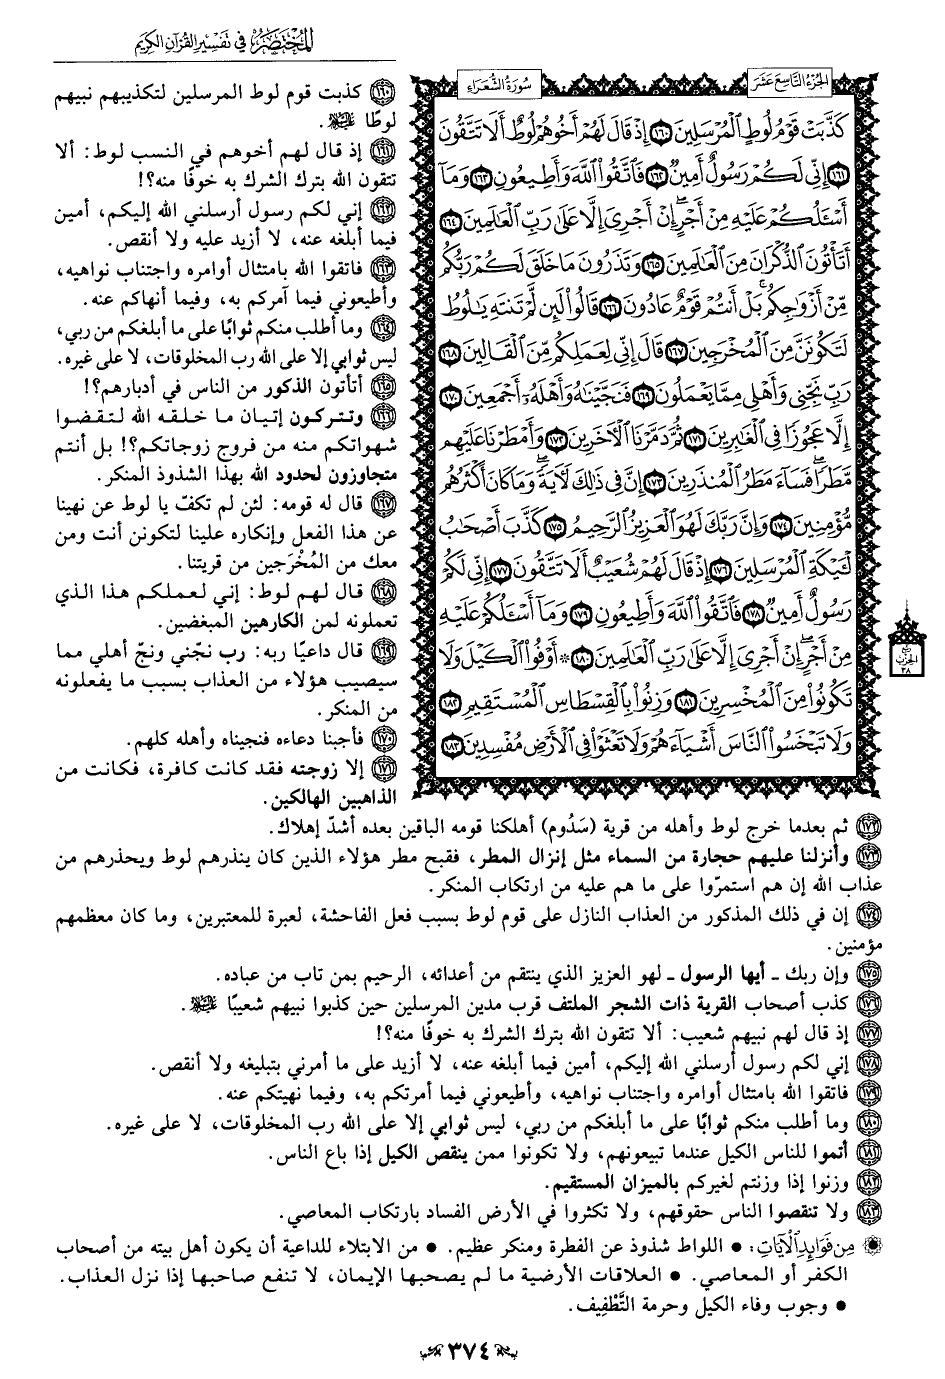 المختصر في تفسير القرآن الكريم
الجزء التاسع عشر
سورة الشعراء
كَذَّبَتْ قَوْمُ لُوطٍ الْمُرْسَلِينَ ١٦٠ إِذْ قَالَ لَهُمْ أَخُوهُمْ لُوطٌ أَلَا تَتَّقُونَ
١٦١ إِنِّي لَكُمْ رَسُولٌ أَمِينٌ ١٦٢ فَاتَّقُوا اللَّهَ وَأَطِيعُونِ ١٦٣ وَمَا
أَسْئَلُكُمْ عَلَيْهِ مِنْ أَجْرٍ إِنْ أَجْرِيَ إِلَّا عَلَى رَبِّ الْعَالَمِينَ ١٦٤
أَتَأْتُونَ الذُّكْرَانَ مِنَ الْعَالَمِينَ ١٦٥ وَتَذَرُونَ مَا خَلَقَ لَكُمْ رَبُّكُمْ
مِنْ أَزْوَاجِكُمْ بَلْ أَنْتُمْ قَوْمٌ عَادُونَ ١٦٦ قَالُوا لَئِنْ لَمْ تَنْتَهِ يَالُوطُ
لَتَكُونَنَّ مِنَ الْمُخْرَجِينَ ١٦٧ قَالَ إِنِّي لِعَمَلِكُمْ مِنَ الْقَالِينَ ١٦٨
رَبِّ نَجِّنِي وَأَهْلِي مِمَّا يَعْمَلُونَ ١٦٩ فَنَجَّيْنَاهُ وَأَهْلَهُ أَجْمَعِينَ ١٧٠
إِلَّا عَجُوزًا فِي الْغَابِرِينَ ١٧١ ثُمَّ دَمَّرْنَا الْآخَرِينَ ١٧٢ وَأَمْطَرْنَا عَلَيْهِمْ
مَطَرًا فَسَاءَ مَطَرُ الْمُنْذَرِينَ ١٧٣ إِنَّ فِي ذَلِكَ لَآيَةً وَمَا كَانَ أَكْثَرُهُمْ
مُؤْمِنِينَ ١٧٤ وَإِنَّ رَبَّكَ لَهُوَ الْعَزِيزُ الرَّحِيمُ ١٧٥ كَذَّبَ أَصْحَابُ
لْئَيْكَةِ الْمُرْسَلِينَ ١٧٦ إِذْ قَالَ لَهُمْ شُعَيْبٌ أَلَا تَتَّقُونَ ١٧٧ إِنِّي لَكُمْ
رَسُولٌ أَمِينٌ ١٧٨ فَاتَّقُوا اللَّهَ وَأَطِيعُونِ ١٧٩ وَمَا أَسْئَلُكُمْ عَلَيْهِ
مِنْ أَجْرٍ إِنْ أَجْرِيَ إِلَّا عَلَى رَبِّ الْعَالَمِينَ ١٨٠ * أَوْفُوا الْكَيْلَ وَلَا
تَكُونُوا مِنَ الْمُخْسِرِينَ ١٨١ وَزِنُوا بِالْقِسْطَاسِ الْمُسْتَقِيمِ ١٨٢
وَلَا تَبْخَسُوا النَّاسَ أَشْيَاءَهُمْ وَلَا تَعْثَوْا فِي الْأَرْضِ مُفْسِدِينَ ١٨٣
ربع
الحزب
٣٨
١٦٠ كذبت قوم لوط المرسلين لتكذيبهم نبيهم
لوطًا عليه السلام.
١٦١ إذ قال لهم أخوهم في النسب لوط: ألا
تتقون الله بترك الشرك به خوفًا منه؟!
١٦٢ إني لكم رسول أرسلني الله إليكم، أمين
فيما أبلغه عنه، لا أزيد عليه ولا أنقص.
١٦٣ فاتقوا الله بامتثال أوامره واجتناب نواهيه،
وأطيعوني فيما آمركم به، وفيما أنهاكم عنه.
١٦٤ وما أطلب منكم ثوابًا على ما أبلغكم من ربي،
ليس ثوابي إلا على الله رب المخلوقات، لا على غيره.
١٦٥ أتأتون الذكور من الناس في أدبارهم؟!
١٦٦ وتتركون إتيان ما خلقه الله لتقضوا
شهواتكم منه من فروج زوجاتكم؟! بل أنتم
متجاوزون لحدود الله بهذا الشذوذ المنكر.
١٦٧ قال له قومه: لئن لم تكفّ يا لوط عن نهينا
عن هذا الفعل وإنكاره علينا لتكونن أنت ومن
معك من المُخْرَجين من قريتنا.
١٦٨ قال لهم لوط: إني لعملكم هذا الذي
تعملونه لمن الكارهين المبغضين.
١٦٩ قال داعيًا ربه: رب نجّني ونجّ أهلي مما
سيصيب هؤلاء من العذاب بسبب ما يفعلونه
من المنكر.
١٧٠ فأجبنا دعاءه فنجيناه وأهله كلهم.
١٧١ إلا زوجته فقد كانت كافرة، فكانت من
الذاهبين الهالكين.
١٧٢ ثم بعدما خرج لوط وأهله من قرية (سَدُوم) أهلكنا قومه الباقين بعده أشدّ إهلاك.
١٧٣ وأنزلنا عليهم حجارة من السماء مثل إنزال المطر، فقبح مطر هؤلاء الذين كان ينذرهم لوط ويحذرهم من
عذاب الله إن هم استمرّوا على ما هم عليه من ارتكاب المنكر.
١٧٤ إن في ذلك المذكور من العذاب النازل على قوم لوط بسبب فعل الفاحشة، لعبرة للمعتبرين، وما كان معظمهم
مؤمنين.
١٧٥ وإن ربك ـ أيها الرسول ـ لهو العزيز الذي ينتقم من أعدائه، الرحيم بمن تاب من عباده.
١٧٦ كذب أصحاب القرية ذات الشجر الملتف قرب مدين المرسلين حين كذبوا نبيهم شعيبًا عليه السلام.
١٧٧ إذ قال لهم نبيهم شعيب: ألا تتقون الله بترك الشرك به خوفًا منه؟!
١٧٨ إني لكم رسول أرسلني الله إليكم، أمين فيما أبلغه عنه، لا أزيد على ما أمرني بتبليغه ولا أنقص.
١٧٩ فاتقوا الله بامتثال أوامره واجتناب نواهيه، وأطيعوني فيما أمرتكم به، وفيما نهيتكم عنه.
١٨٠ وما أطلب منكم ثوابًا على ما أبلغكم من ربي، ليس ثوابي إلا على الله رب المخلوقات، لا على غيره.
١٨١ أتموا للناس الكيل عندما تبيعونهم، ولا تكونوا ممن ينقص الكيل إذا باع الناس.
١٨٢ وزنوا إذا وزنتم لغيركم بالميزان المستقيم.
١٨٣ ولا تنقصوا الناس حقوقهم، ولا تكثروا في الأرض الفساد بارتكاب المعاصي.
من فوائد الآيات: • اللواط شذوذ عن الفطرة ومنكر عظيم. • من الابتلاء للداعية أن يكون أهل بيته من أصحاب
الكفر أو المعاصي. • العلاقات الأرضية ما لم يصحبها الإيمان، لا تنفع صاحبها إذا نزل العذاب.
• وجوب وفاء الكيل وحرمة التَّطْفِيف.
٣٧٤